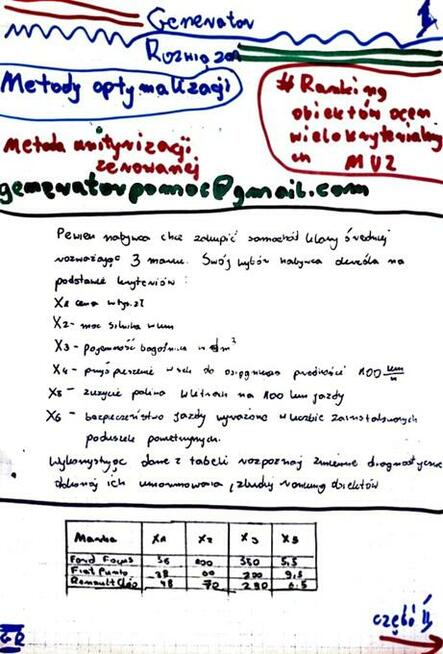 Generator
Rozwiązań
Metody optymalizacji
# Ranking
obiektów ocen
wielokryterialny
ch MUZ
Metoda unitaryzacji
zerowanej
generatorpomoc@gmail.com
Pewien nabywca chce zakupić samochód klasy średniej
rozważając 3 marki. Swój wybór nabywca określa na
podstawie kryteriów:
X1 cena w tys. zł
X2 - moc silnika w km
X3 - pojemność bagażnika w dm³
X4 - przyśpieszenie w sek do osiągnięcia prędkości 100 km/h
X5 - zużycie paliwa w litrach na 100 km jazdy
X6 - bezpieczeństwo jazdy wyrażone w liczbie zainstalowanych
poduszek powietrznych.
Wykorzystując dane z tabeli rozpoznaj zmienne diagnostyczne
dokonaj ich unormowania, zbuduj ranking obiektów
Marka X1 X2 X3 X5
Ford Focus 56 100 350 5,5
Fiat Punto 38 60 200
Renault Clio 48 70 280 6.5
część II
GR